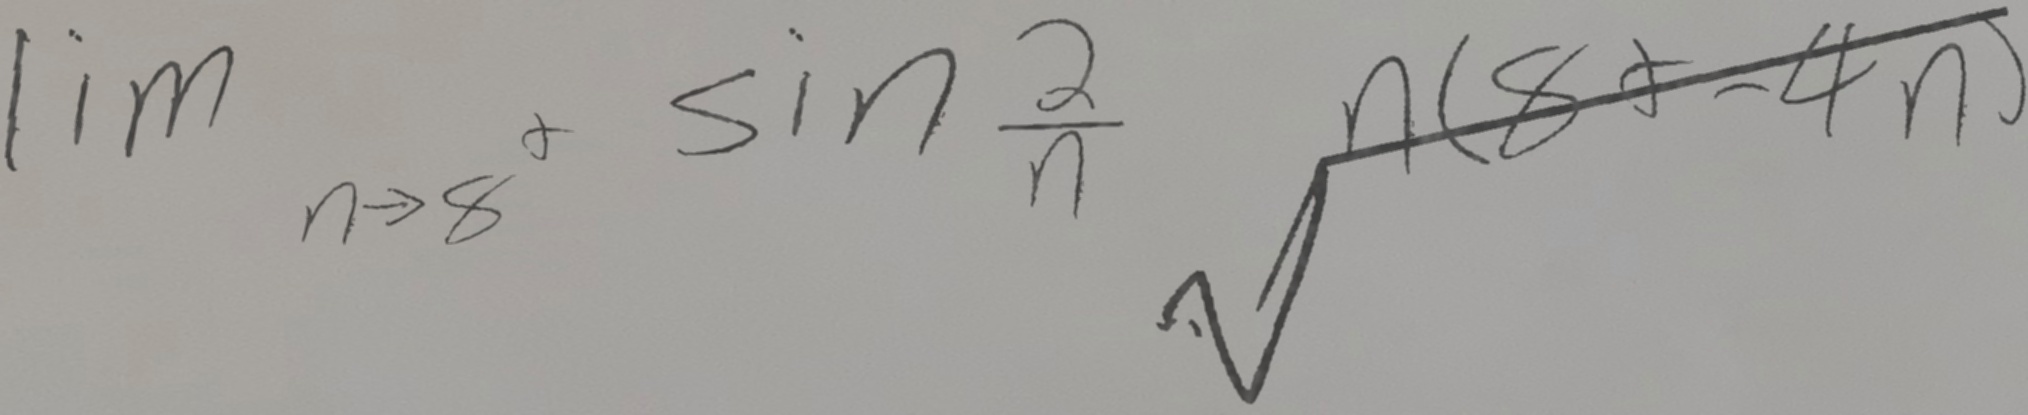 lim n→8⁺ sin 2/n √n(8+-4n)